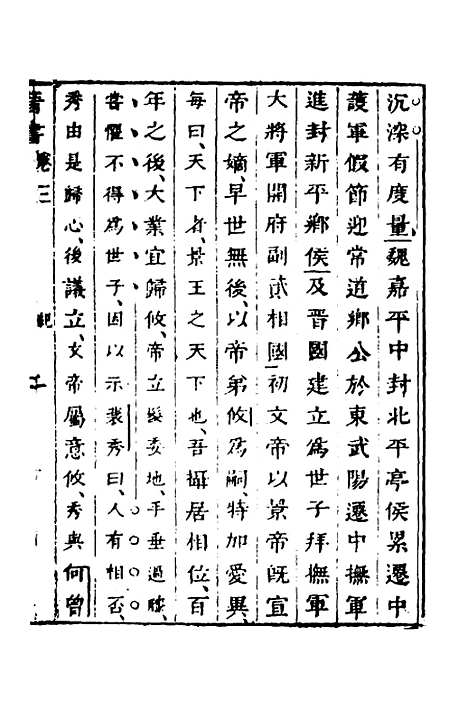 沉深有度量魏嘉平中封北平亭侯累遷中
護軍假節迎常道鄉公於東武陽遷中撫軍
進封新平鄉侯及晉國建立爲世子拜撫軍
大將軍開府副貳相國初文帝以景帝旣宣
帝之嫡、早世無後、以帝弟攸爲嗣、特加愛異、
每曰、天下者、景王之天下也、吾攝居相位、百
年之後、大業宜歸攸、帝立髮委地、手垂過膝、
嘗懼不得爲世子、因以示裴秀曰、人有相否、
秀由是歸心、後議立、文帝屬意攸、秀與何曾
晉書 卷三 紀